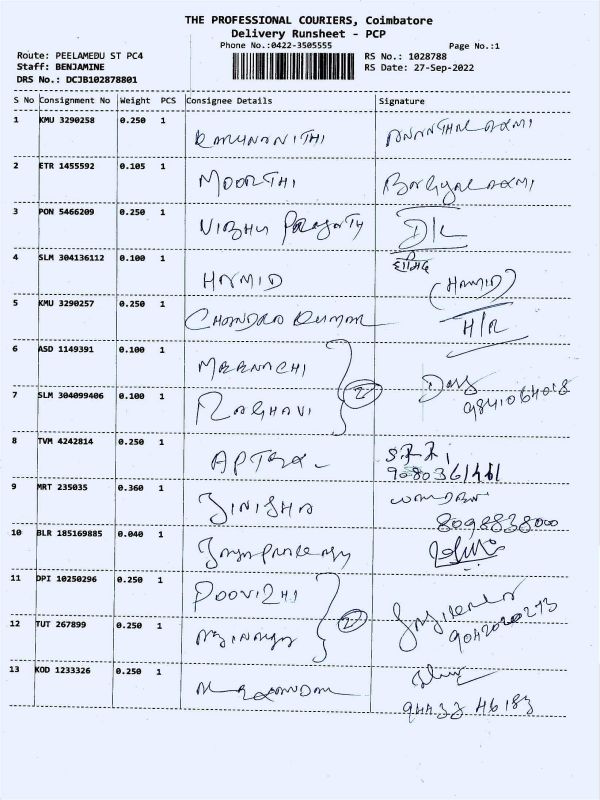 THE PROFESSIONAL COURIERS, Coimbatore
Delivery Runsheet - PCP
Phone No.:0422-3505555 Page No.:1
Route: PEELAMEDU ST PC4 RS No.: 1028788
Staff: BENJAMINE RS Date: 27-Sep-2022
DRS No.: DCJB102878801
S No Consignment No Weight PCS Consignee Details Signature
1 KMU 3290258 0.250 1 KARUNANITHI ANANTHALAXMI
2 ETR 1455592 0.105 1 MOORTHI
3 PON 5466209 0.250 1 VIBHU
4 SLM 304136112 0.100 1 HAMID (HAMID)
5 KMU 3290257 0.250 1 CHANDRA KUMAR H/R
6 ASD 1149391 0.100 1 MEENACHI
7 SLM 304099406 0.100 1 RAGHAVI 2
8 TVM 4242814 0.250 1
9 MRT 235035 0.360 1 JINISHA
8098838000
10 BLR 185169885 0.040 1
11 DPI 10250296 0.250 1 POOVIZHI
12 TUT 267899 0.250 1 2
13 KOD 1233326 0.250 1
94433 46183